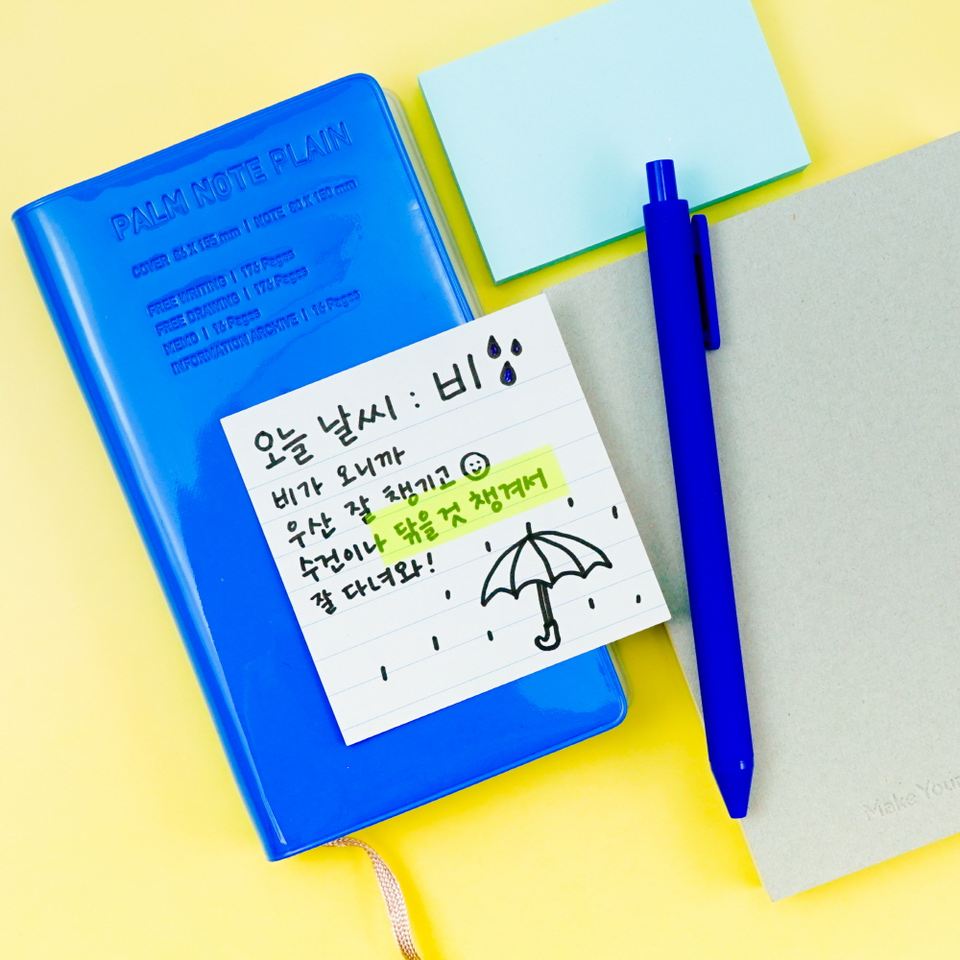 PALM NOTE PLAIN
COVER 86 X 155 mm | NOTE 80 X 150 mm
FREE WRITING | 176 Pages
FREE DRAWING | 176 Pages
MEMO | 16 Pages
INFORMATION ARCHIVE | 16 Pages
오늘 날씨 : 비
비가 오니까
우산 잘 챙기고
수건이나 닦을것 챙겨서
잘 다녀와!
Make Your